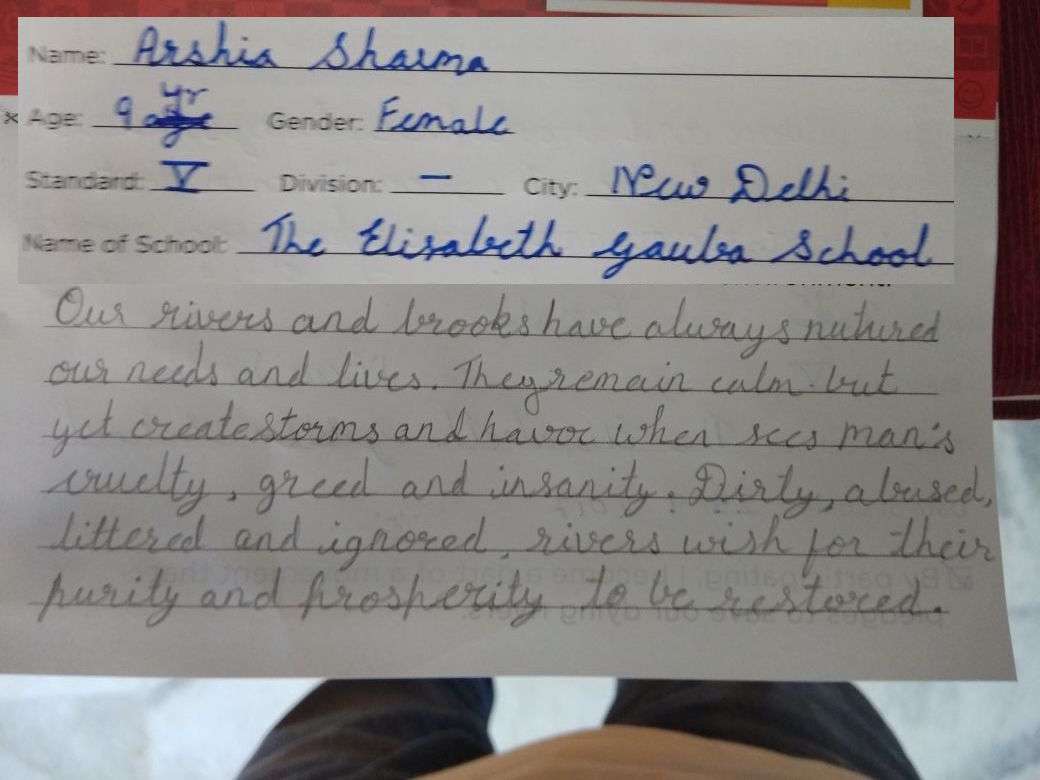 Name: Arshia Sharma
Age: 9 yr Gender: Female
Standard: V Division: — City: New Delhi
Name of School: The Elisabeth Gauba School
Our rivers and brooks have always nutured
our needs and lives. They remain calm but
yet create storms and havoc when sees man's
cruelty, greed and insanity. Dirty, abused,
littered and ignored, rivers wish for their
purity and prosperity to be restored.